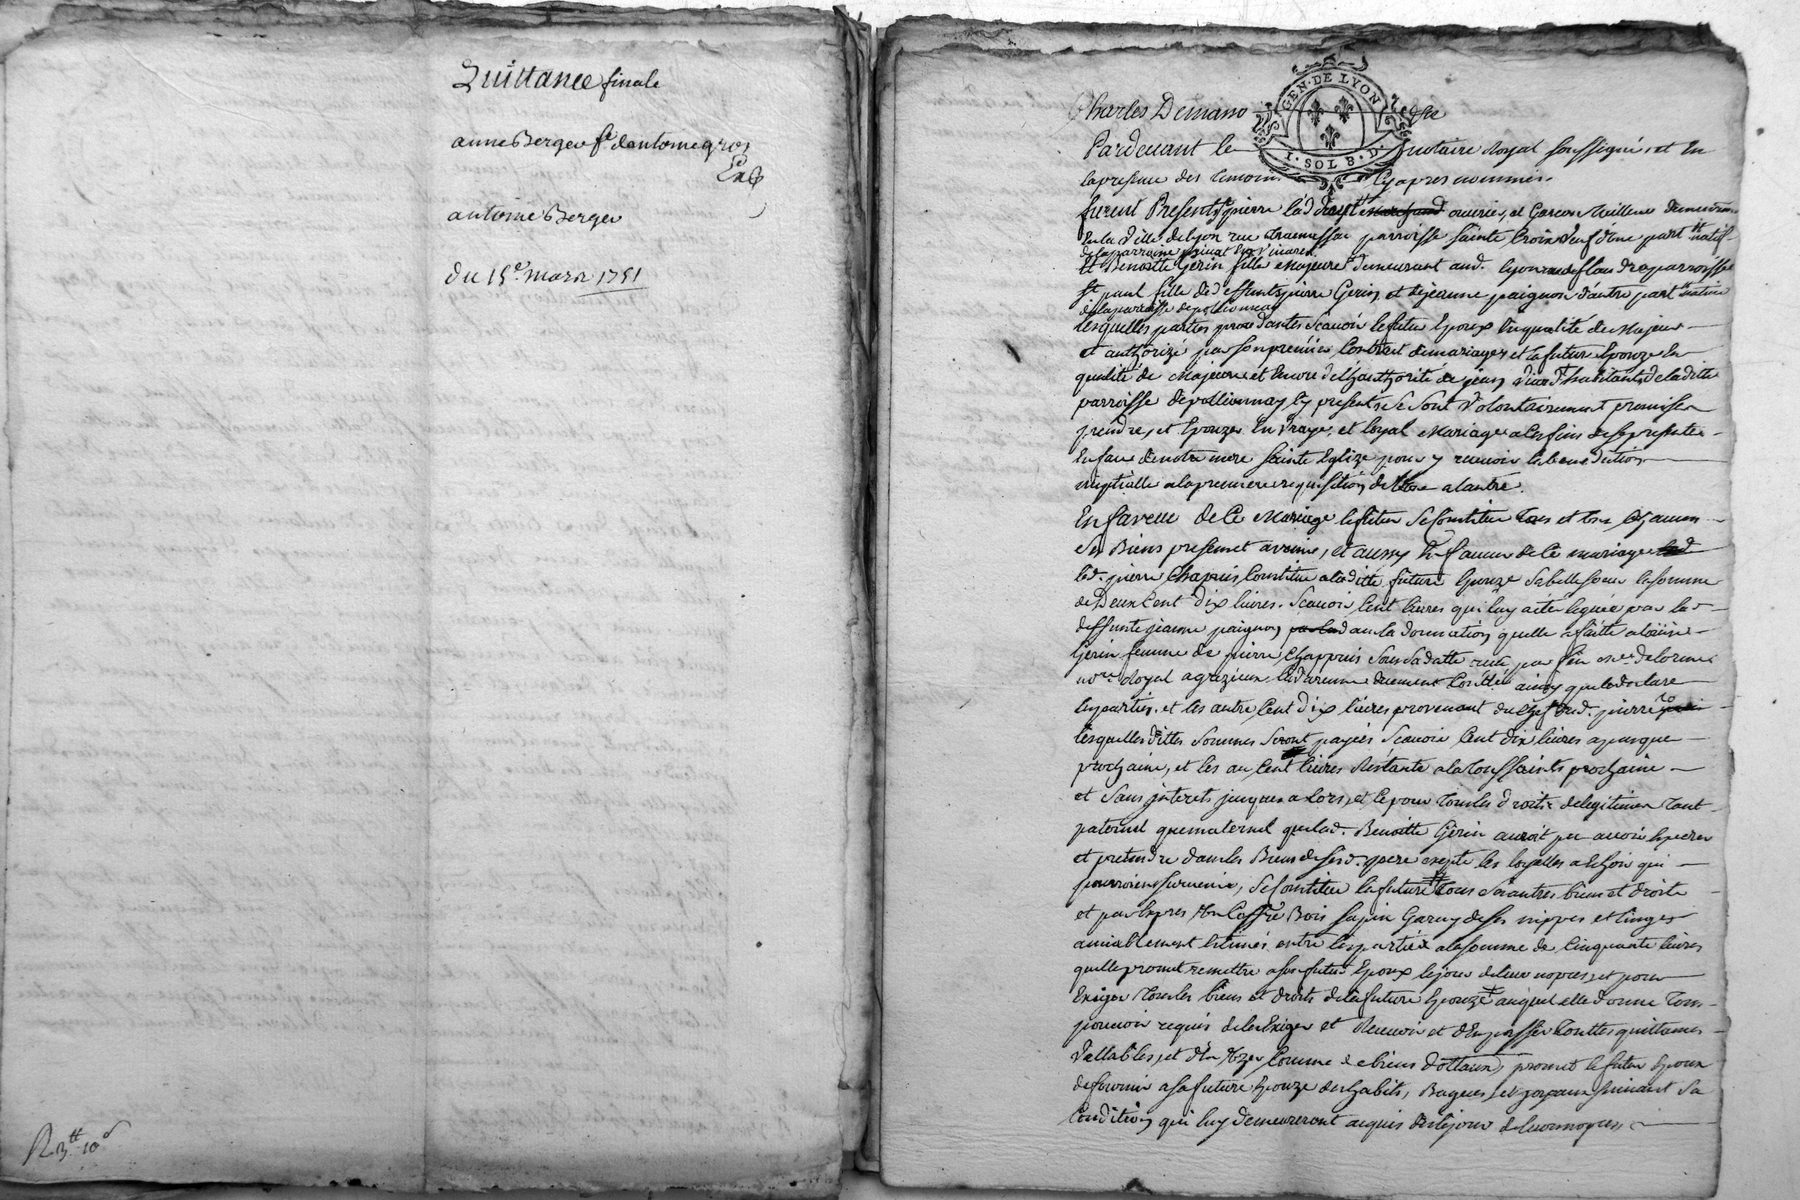 Quittance finale
anne Berger fe dantoine gros
antoine Berger
du 15e. mars 1751
R 3tt 10s
Charles Demano
GEN. DE LYON
I. SOL 8. D.
Pardevant le notaire Royal soussigné, et En
la presence des temoins Cy apres nommés.
furent Presents Sr. pierre ouvrier, et Garçon tailleur demeurant
En la Ville de Lyon rue tramassac parroisse sainte Croix Veuf d'une part natif
de la parroisse
Et Benoitte Gerin fille Majeure demeurant aud. Lyon parroisse
St. paul fille de deffunts pierre Gerin, et de jeanne paignon d'autre part native
de la parroisse de pollionnay
lesquelles parties procedantes Scavoir le futur Epoux En qualité de Majeur
et authorizé par son premier Contract de mariage, et la future Epouze En
qualité de Majeure et Encore de L'authorité de jean habitant de la ditte
parroisse de pollionnay Cy present, Se Sont Volontairement promis se
prendre, et Epouzer En Vraye, et loyal Mariage a les fins de se presenter
En face de notre mere Sainte Eglize pour y recevoir la benediction
nuptialle a la premiere requisition de l'une a l'autre.
En faveur de Ce Mariage le futur Se Constitue tous et un Chacuns
Ses Biens present et avenir, et aussy En faveur de Ce mariage
led. pierre Chapuis Constitue a la ditte future Epouze Sa belle soeur la somme
de Deux Cent Dix livres. Scavoir Cent livres qui luy a été leguée par la
deffunte jeanne paignon dans la donnation quelle a faitte a
Gerin femme de pierre Chappuis Sous Sa datte recue par feu me. delorme
nore. Royal a grezieu la Varenne duement Conttée ainsy que le declare
les parties. et les autre Cent Dix livres provenant du Chef dud. pierre
lesquelles dittes Sommes Seront payées Scavoir Cent dix livres a paques
prochaine, et les Cent livres Restante a la toussaints prochaine
et Sans interets jusques alors, et Ce pour tous les droits de legitimes tant
paternel que maternel que lad. Benoitte Gerin auroit peu avoir Esperer
et pretendre dans les Biens de Sesd. pere excepté les loyalles a Echoir qui
pourroient Survenir, Se Constitue la future tous Ses autres biens et droits
et par Exprès Un Coffre Bois Sapin Garny de Ses nippes et linges
amiablement Estimés entre les parties a la somme de Cinquante livres
quelle promet remettre a son futur Epoux le jour de leur nopces, et pour
Exiger tous les biens et droits de la future Epouze auquel elle donne tous
pouvoir requis de les Exiger et Recevoir et d'En passer touttes quittances
Vallables, et d'En Uzer Comme de biens dottaux, promet le futur Epoux
de fournir a sa future Epouze des habits, Bagues, et joyaux suivant Sa
Condition, qui luy demeureront acquis des le jour de leur nopces